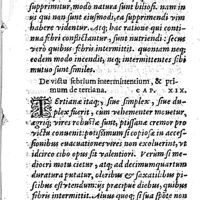 supprimitur, modo natura sunt biliosi. nam in
ijs qui non sunt eiusmodi, ea supprimendi uim
habere uidentur. Atq; hac ratione qui conti-
nua febri conflictantur, sunt nutriendi: secus
uerò quibus febris intermittit. quoniam neq;
eodem modo incedit, neq; intermittentes sibi
mutuo sunt similes.
De uictu febrium intermittentium, & pri-
mum de tertiana. CAP. XIX.
TErtiana itaq;, siue simplex, siue du-
plex fuerit, cum uehementer moueatur,
ægriq; uires robustæ sunt, ptisana cremor pro
uictu conuenit: potissimum si copiosa in accessi-
onibus euacuationes uires non exoluerint, ut
idcirco cibo opus sit ualentiori. Verùm si me-
diocri motu cietur, atq; ad decimumquartum
duratura putatur, oleribus & saxatilibus pi-
scibus est utendum: ijs præcipuè diebus, quibus
febris intermittit. Aliàs quoq; si id